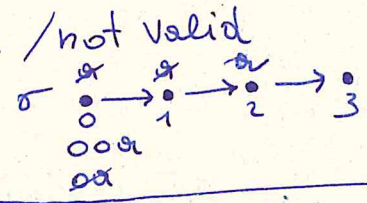 /not valid
a a a
σ • → • → • → •
0 1 2 3
○○a
○a